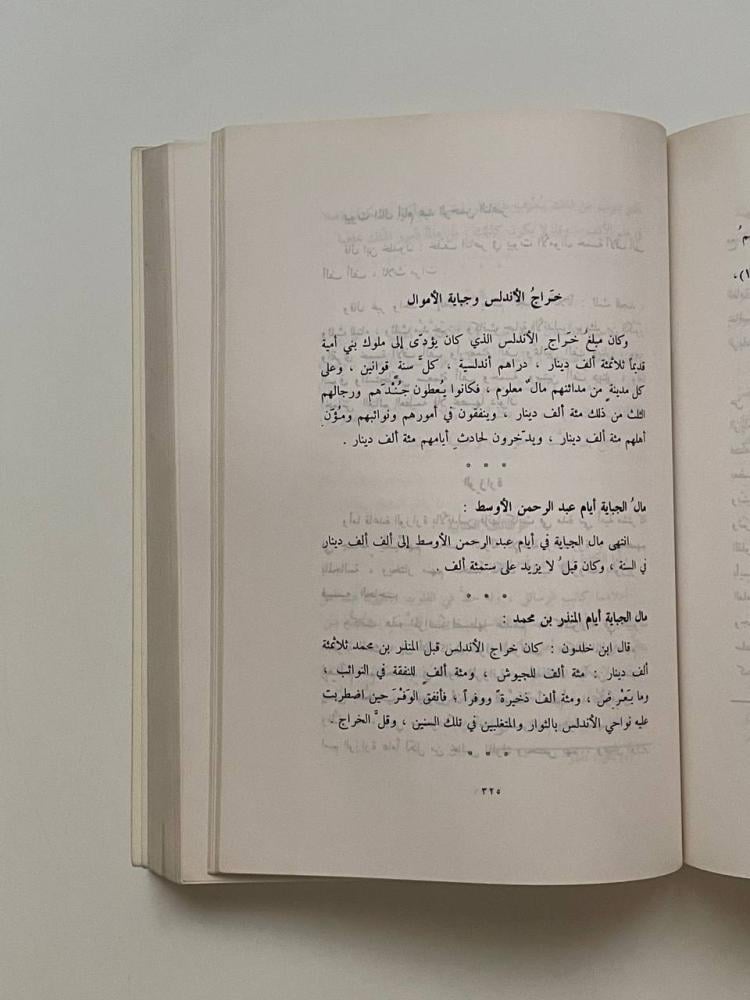 خَراجُ الأندلس وجباية الأموال
وكان مبلغُ خَراجِ الأندلس الذي كان يؤدّى إلى ملوك بني أمية
قديماً ثلاثمئة ألف دينار ، دراهم أندلسية ، كلَّ سنة قوانين ، وعلى
كل مدينةٍ من مدائنهم مالٌ معلوم ، فكانوا يُعطون جُنْدَهم ورجالهم
الثلث من ذلك مئة ألف دينار ، وينفقون في أمورهم ونوائبهم ومُؤَنِ
أهلهم مئة ألف دينار ، ويدّخرون لحادثِ أيامهم مئة ألف دينار .
° ° °
مالُ الجباية أيام عبد الرحمن الأوسط :
انتهى مال الجباية في أيام عبد الرحمن الأوسط إلى ألف ألف دينار
في السنة ، وكان قبلُ لا يزيد على ستمئة ألف .
° ° °
مال الجباية أيام المنذر بن محمد :
قال ابن خلدون : كان خراج الأندلس قبل المنذر بن محمد ثلاثمئة
ألف دينار : مئة ألف للجيوش ، ومئة ألفٍ للنفقة في النوائب ،
وما يَعْرِض ، ومئة ألف ذخيرةً ووفراً ، فأنفق الوَفْرَ حين اضطربت
عليه نواحي الأندلس بالثوار والمتغلبين في تلك السنين ، وقلَّ الخراج .
° ° °
٣٢٥